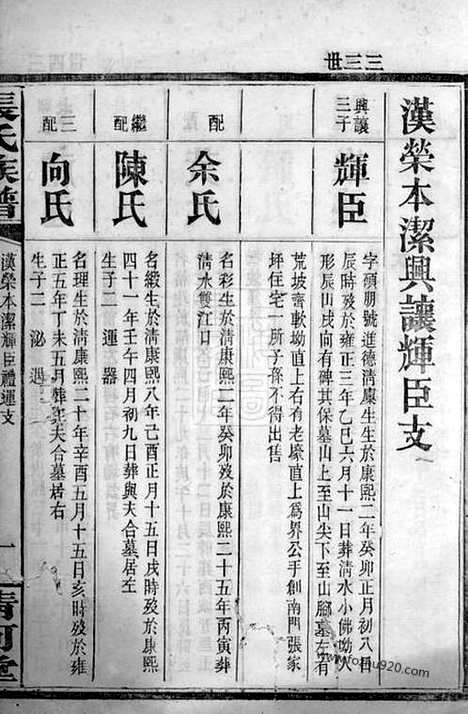 漢榮本潔興讓輝臣支
三三世
興讓
三子
輝臣
字碩朋號進德清廩生生於康熙二年癸卯正月初八日
辰時歿於雍正三年乙巳六月十一日葬清水小佛坳人
形辰山戌向有碑其保墓山上至山尖下至山腳墓左有
荒坡齊軟坳直上右有老壕直上為界公手創南門張家
坪住宅一所子孫不得出售
配
余氏
名彩生於清康熙二年癸卯歿於康熙二十五年丙寅葬
清水雙江口
繼
配
陳氏
名緞生於清康熙八年己酉正月十五日戌時歿於康熙
四十一年壬午四月初九日葬與夫合墓居左
生子二 運 器
三
配
向氏
名理生於清康熙二十年辛酉五月十五日亥時歿於雍
正五年丁未五月葬與夫合墓居右
生子二 泌 過
張氏族譜
漢榮本潔輝臣禮運支
一
清河堂
www.fopu920.com